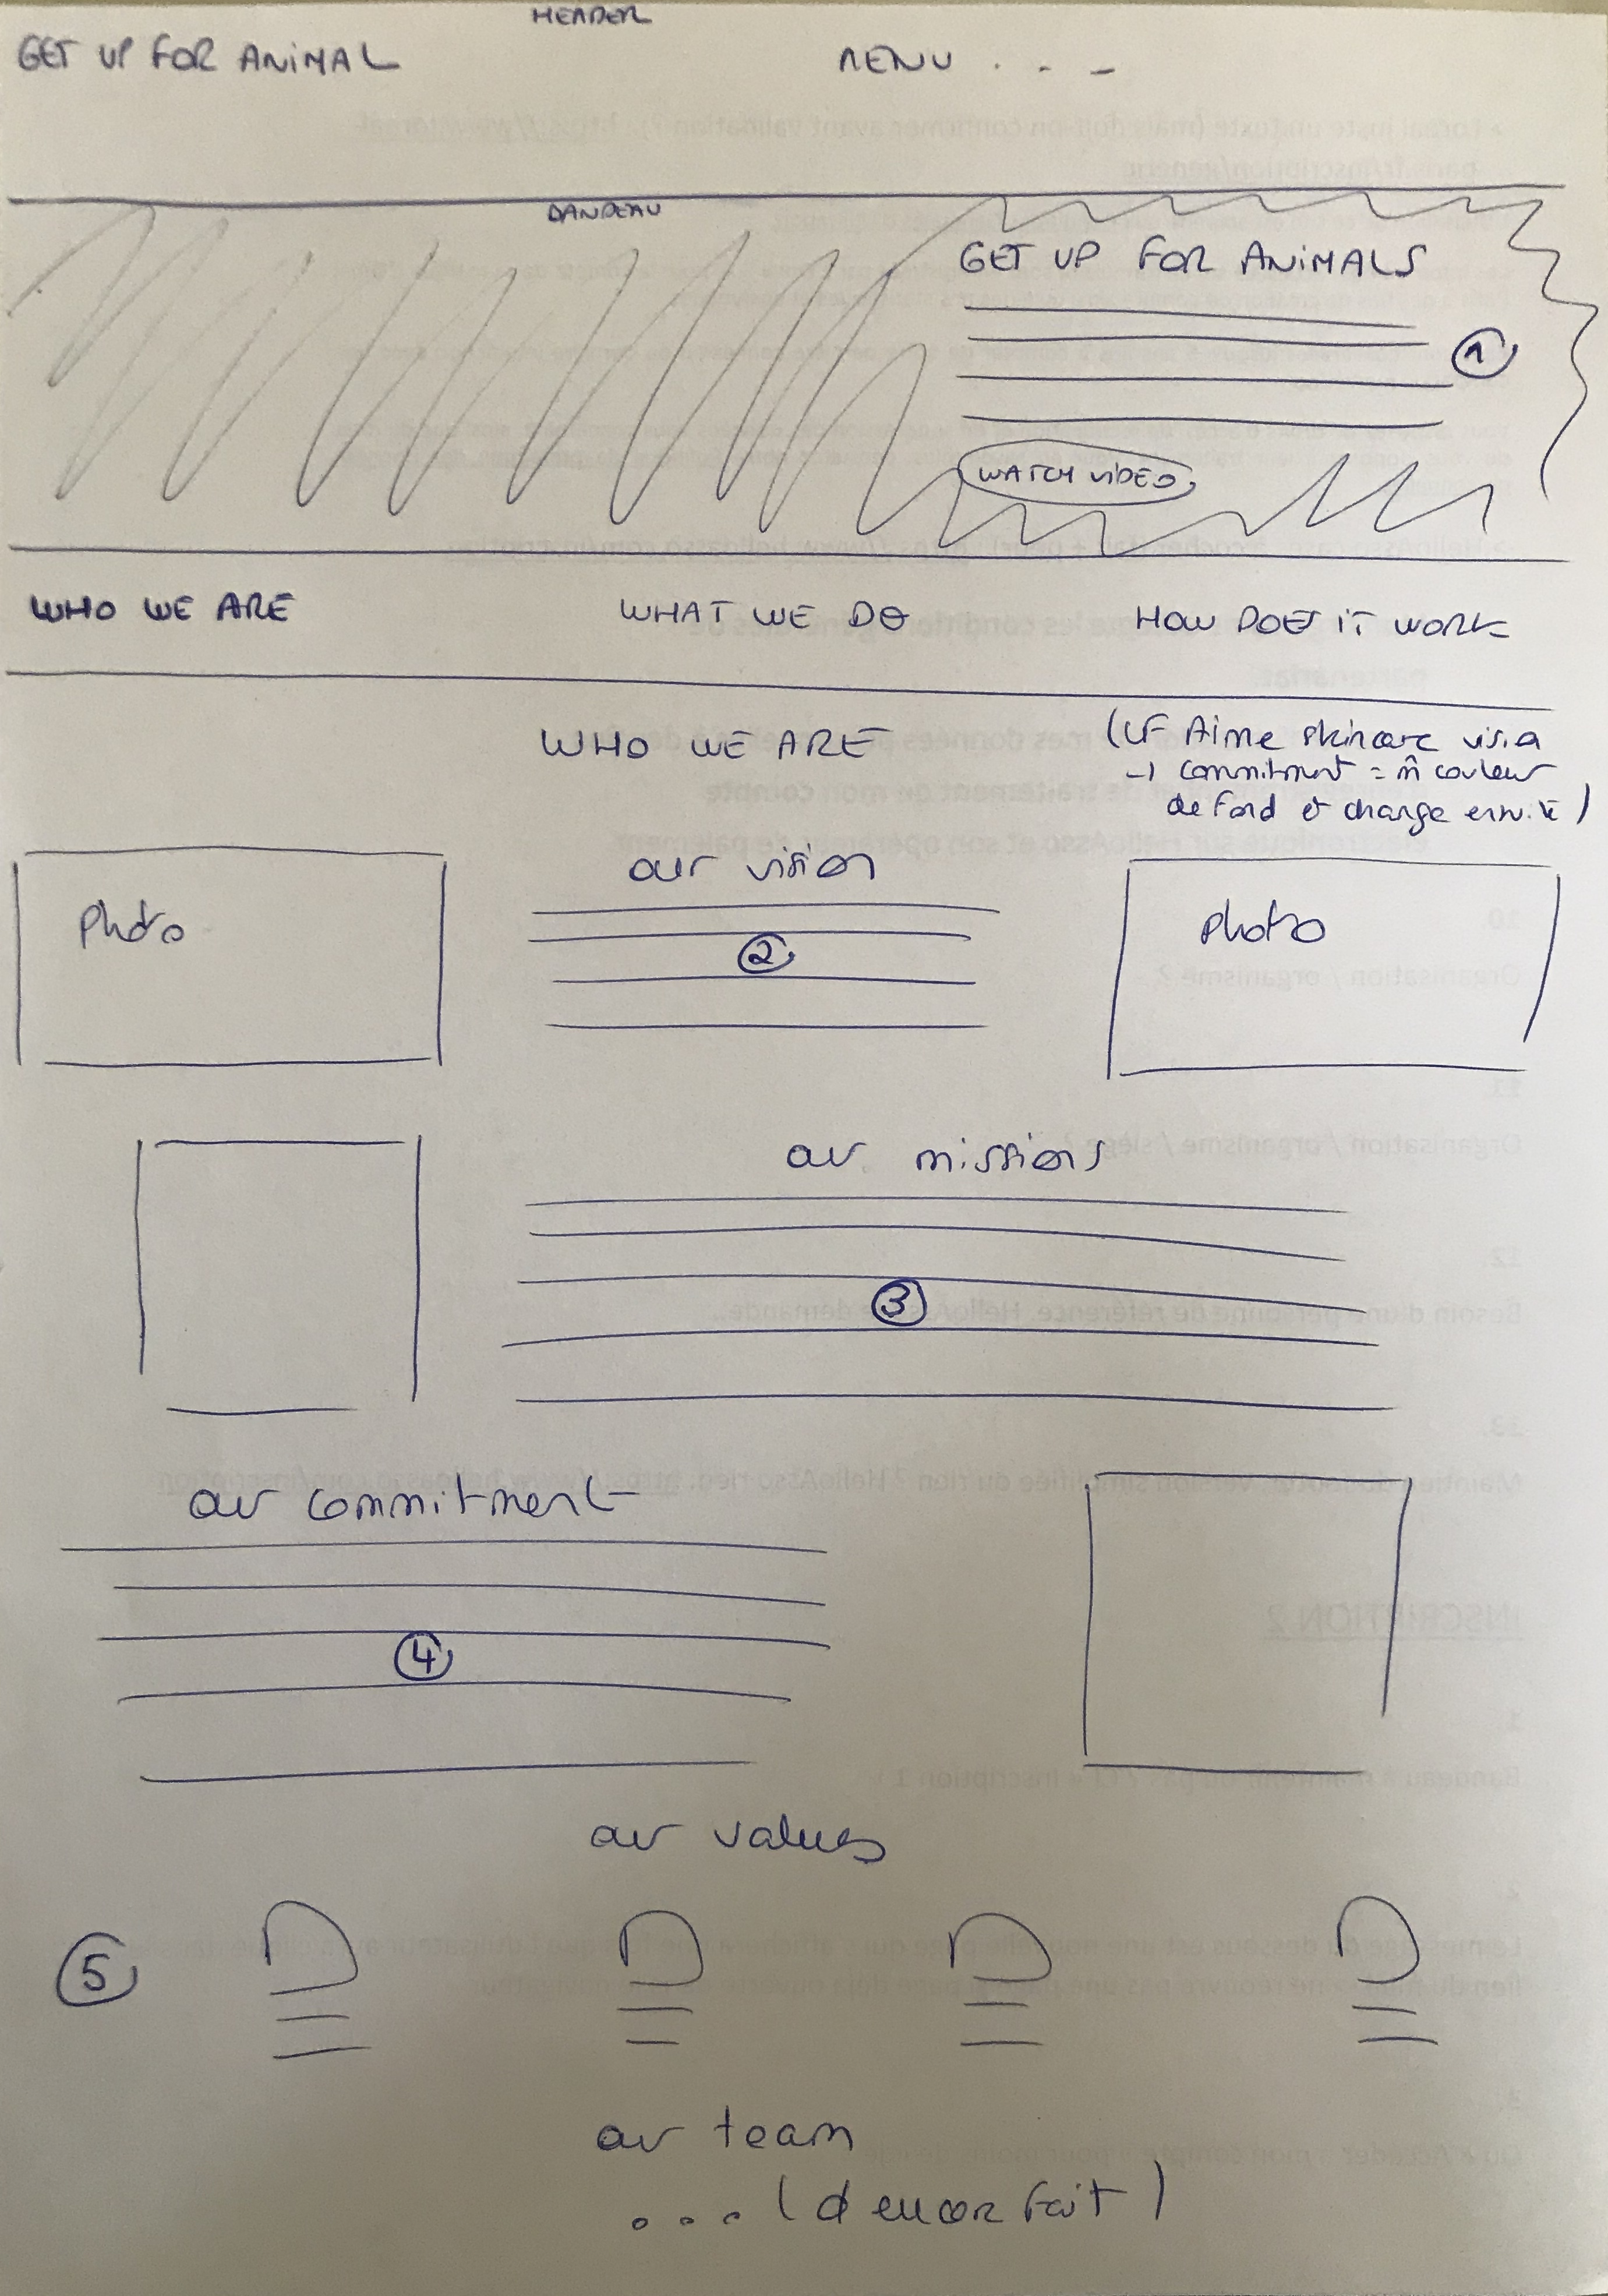 HEADER
GET UP FOR ANIMAL MENU . - -
BANDEAU
GET UP FOR ANIMALS
1
WATCH VIDEO
WHO WE ARE WHAT WE DO HOW DOES IT WORK
WHO WE ARE
(CF Aime skincare
→ commitment = m̂ couleur
de fond et change ensuite)
Photo
our vision
2
Photo
our missions
3
our commitment
4
our values
5
our team
... (encor fait)